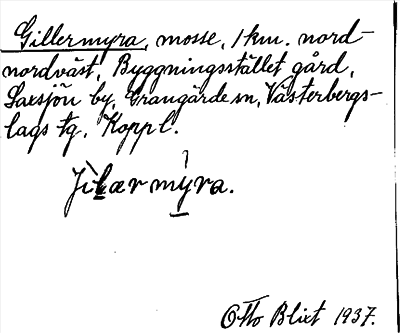 Gillermyra, mosse, 1 km. nord-
nordväst, Byggningsstället gård,
Saxsjön by, Grangärde sn, Västerbergs-
lags tg, Koppl.
Jìlær mỳra.
Otto Blixt 1937.